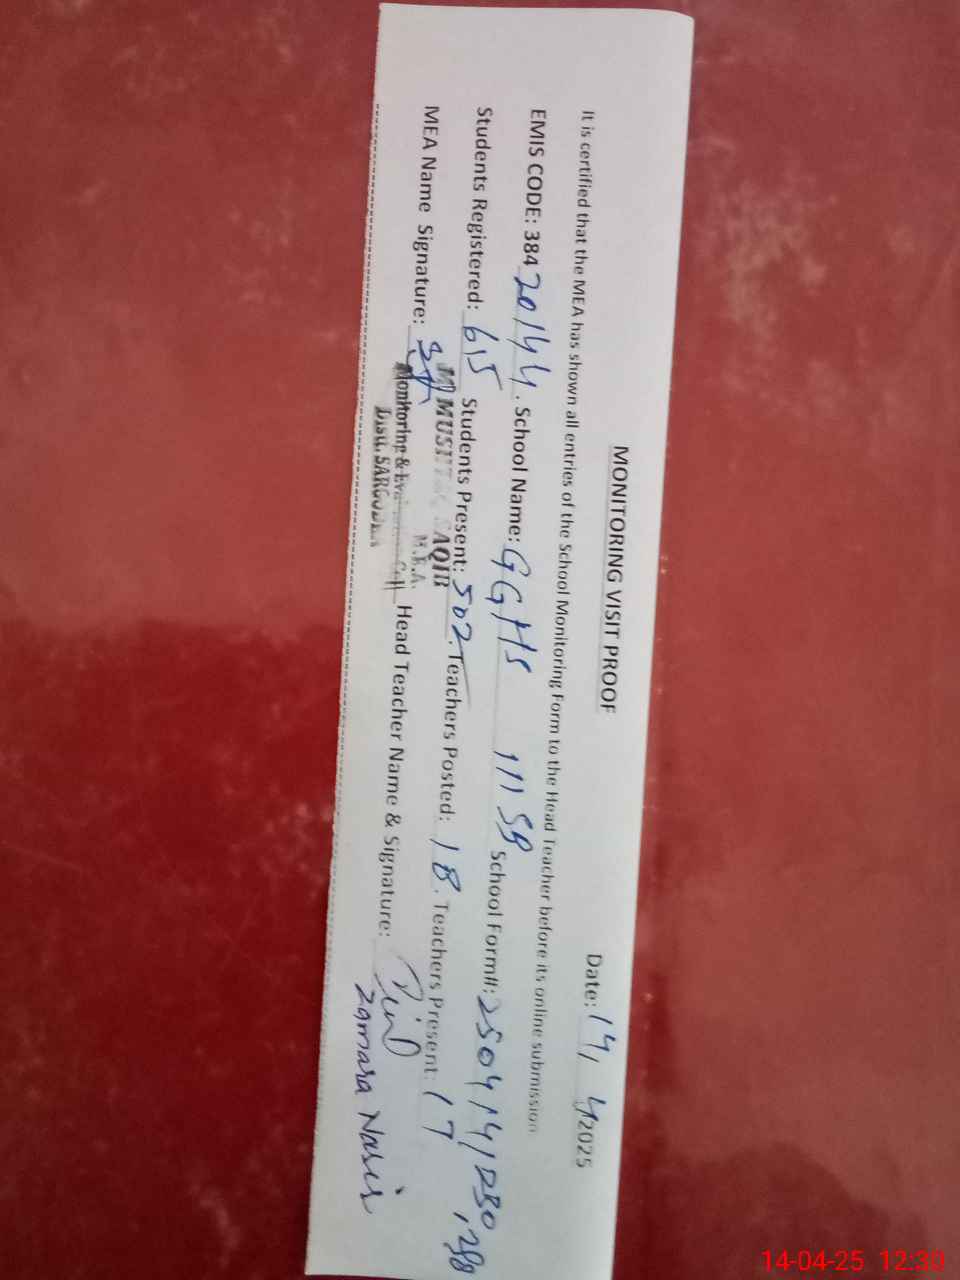 MONITORING VISIT PROOF
Date: 14/ 4/2025
It is certified that the MEA has shown all entries of the School Monitoring Form to the Head Teacher before its online submission
EMIS CODE: 38420144. School Name: GGHS 111 SB School Form#: 2504141230
Students Registered: 615 Students Present: 502. Teachers Posted: 18. Teachers Present: 17
MEA Name Signature: Head Teacher Name & Signature:
AQIB
M.E.A.
Monitoring & Cell
Distt. SARGODHA
Zamara Nasir
14-04-25 12:30